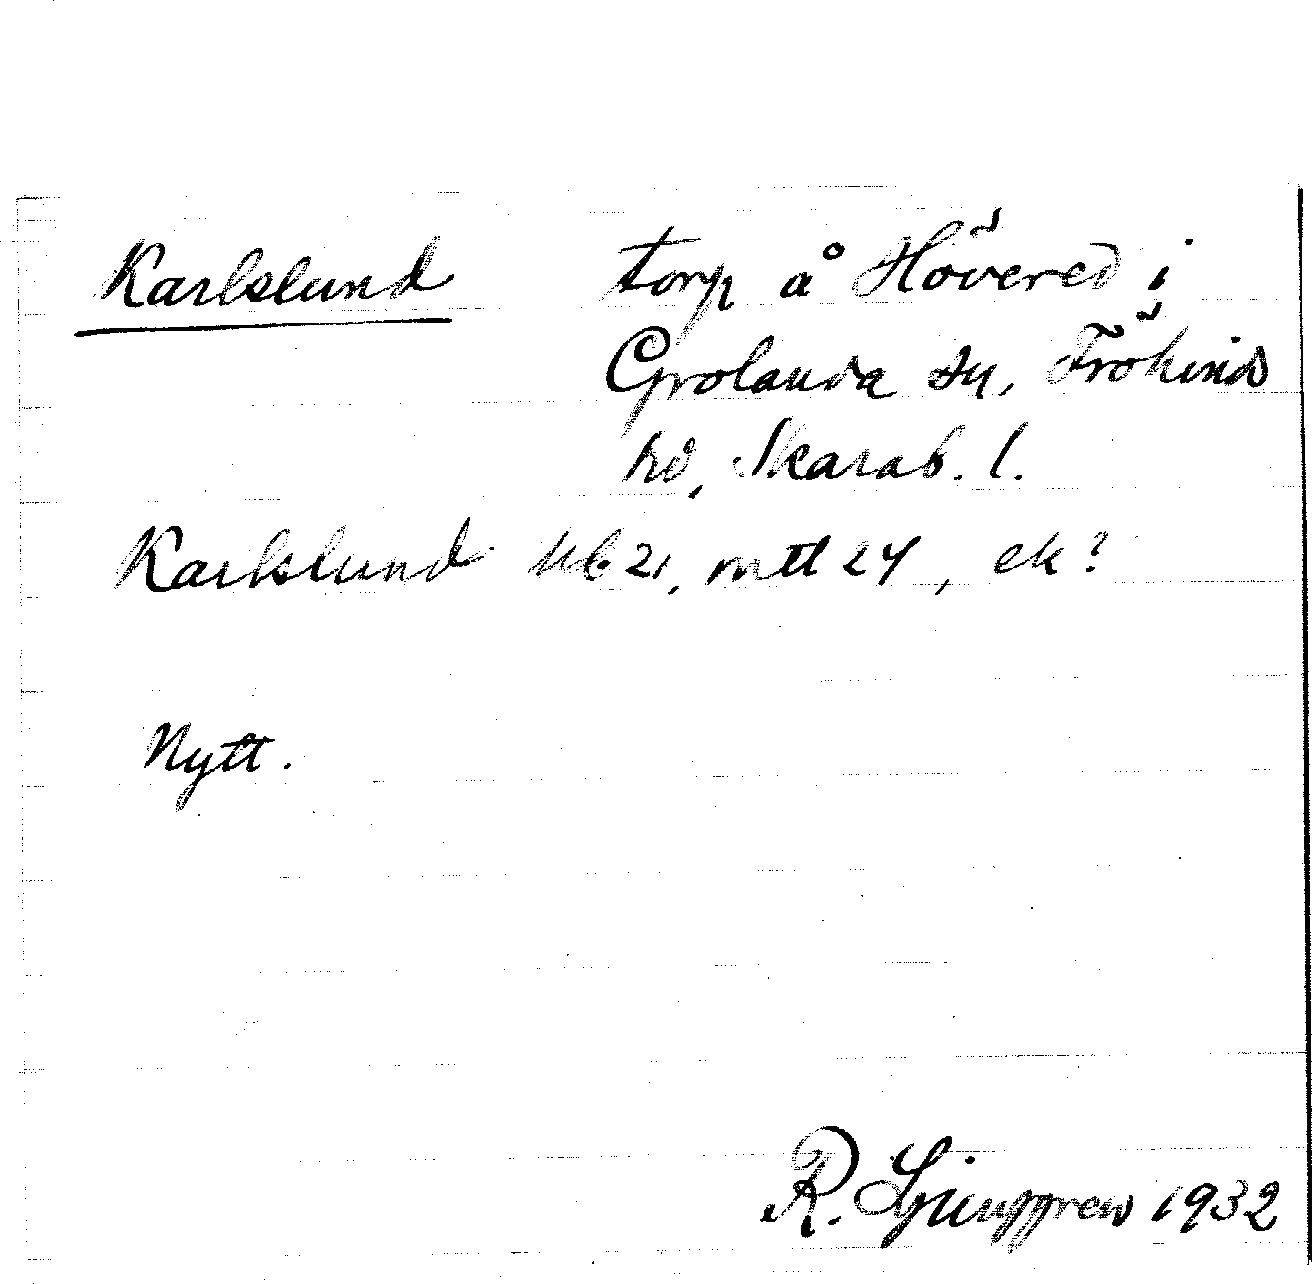 Karlslund torp å Hövered i
Grolanda sn, Frökinds
hd, Skarab. l.
Karlslund kb. 21, mtl 24, ek?
Nytt.
R. Ljunggren 1932